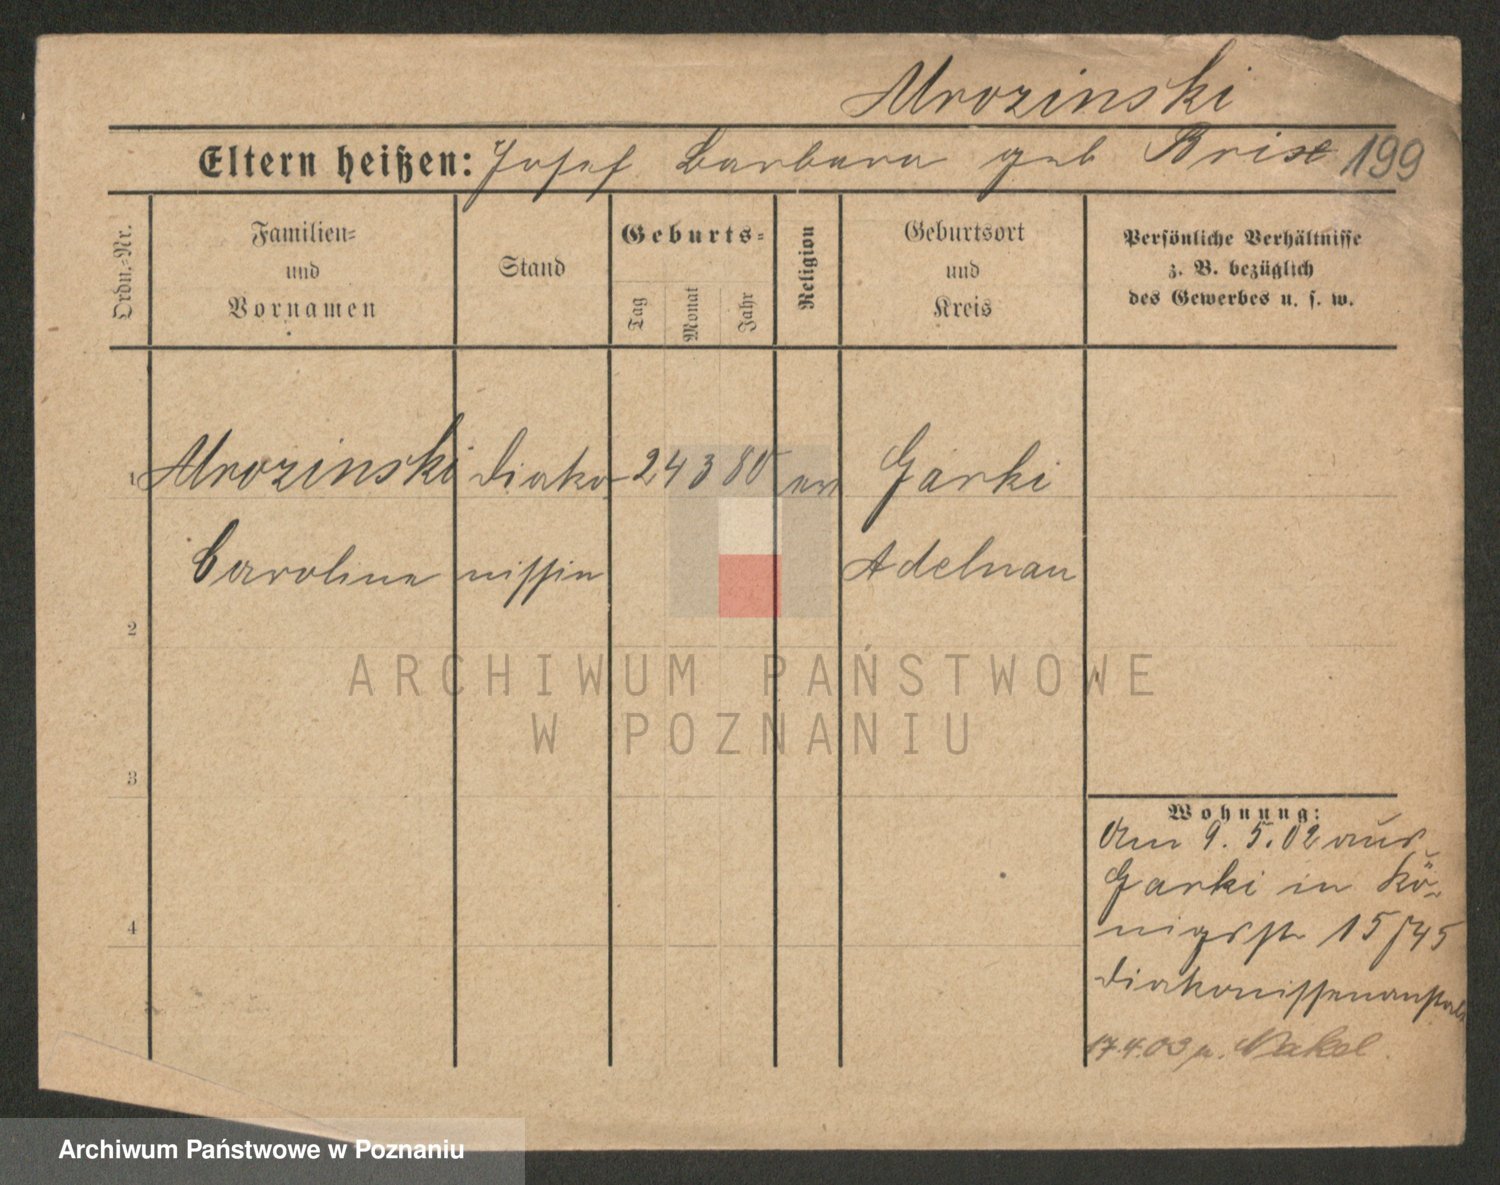 Mrozinski
Eltern heißen: Josef Barbara geb Brise 199
Ordn.-Nr.
Familien-
und
Vornamen
Stand
Geburts-
Tag
Monat
Jahr
Religion
Geburtsort
und
Kreis
Persönliche Verhältnisse
z. B. bezüglich
des Gewerbes u. s. w.
1 Mrozinski Diako- 24 3 80 ev Garki
Caroline nissin Adelnau
2
3
4
ARCHIWUM PAŃSTWOWE
W POZNANIU
Wohnung:
Am 9. 5. 02 aus
Garki in Kö-
nigsstr 15/45
Diakonissenanstalt
17.4.03 n. Nakel.
Archiwum Państwowe w Poznaniu